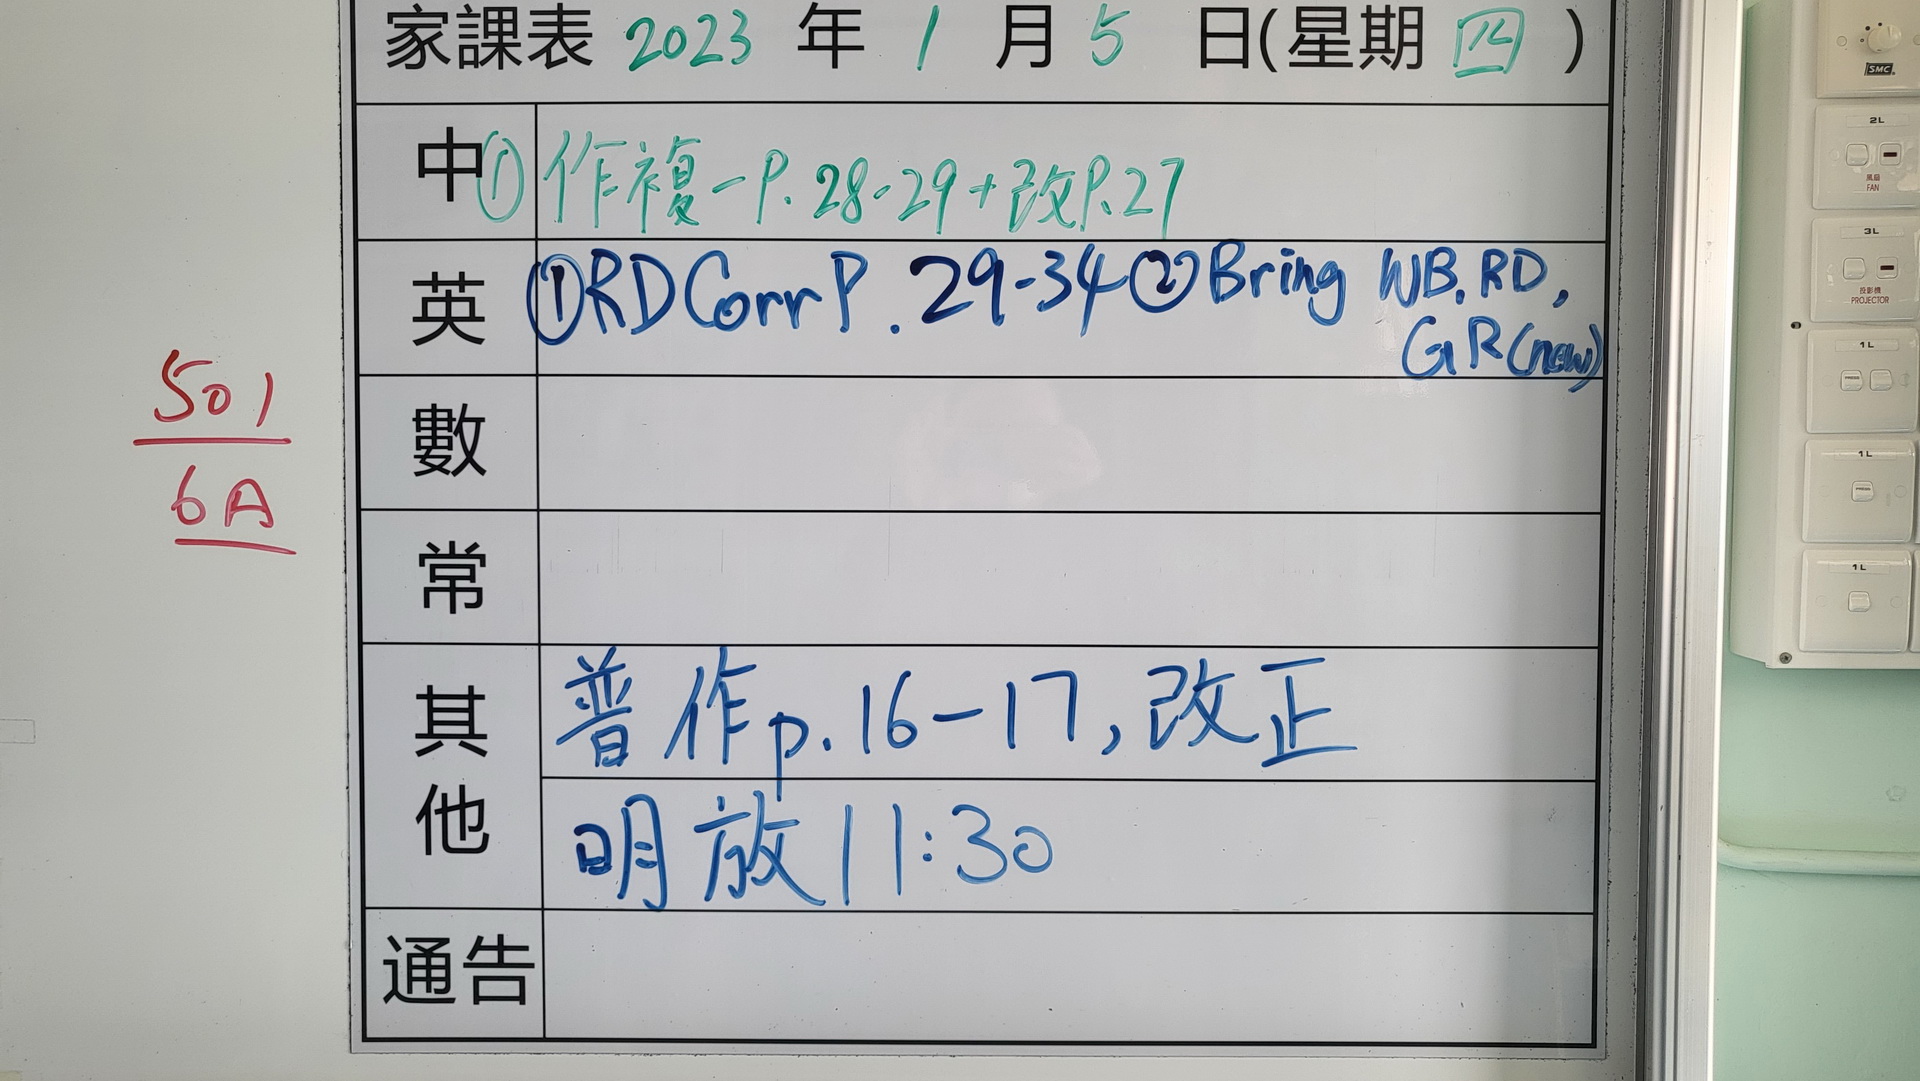 家課表 2023 年 1 月 5 日(星期 四 )
中 ① 作複一P.28-29+改P.27
英 ①RD Corr P.29-34 ②Bring WB, RD,
GR(new)
數
常
其他
普作p.16-17,改正
明放11:30
通告
501
6A
SMC
2L
風扇
FAN
3L
投影機
PROJECTOR
1L
PRESS
1L
PRESS
1L